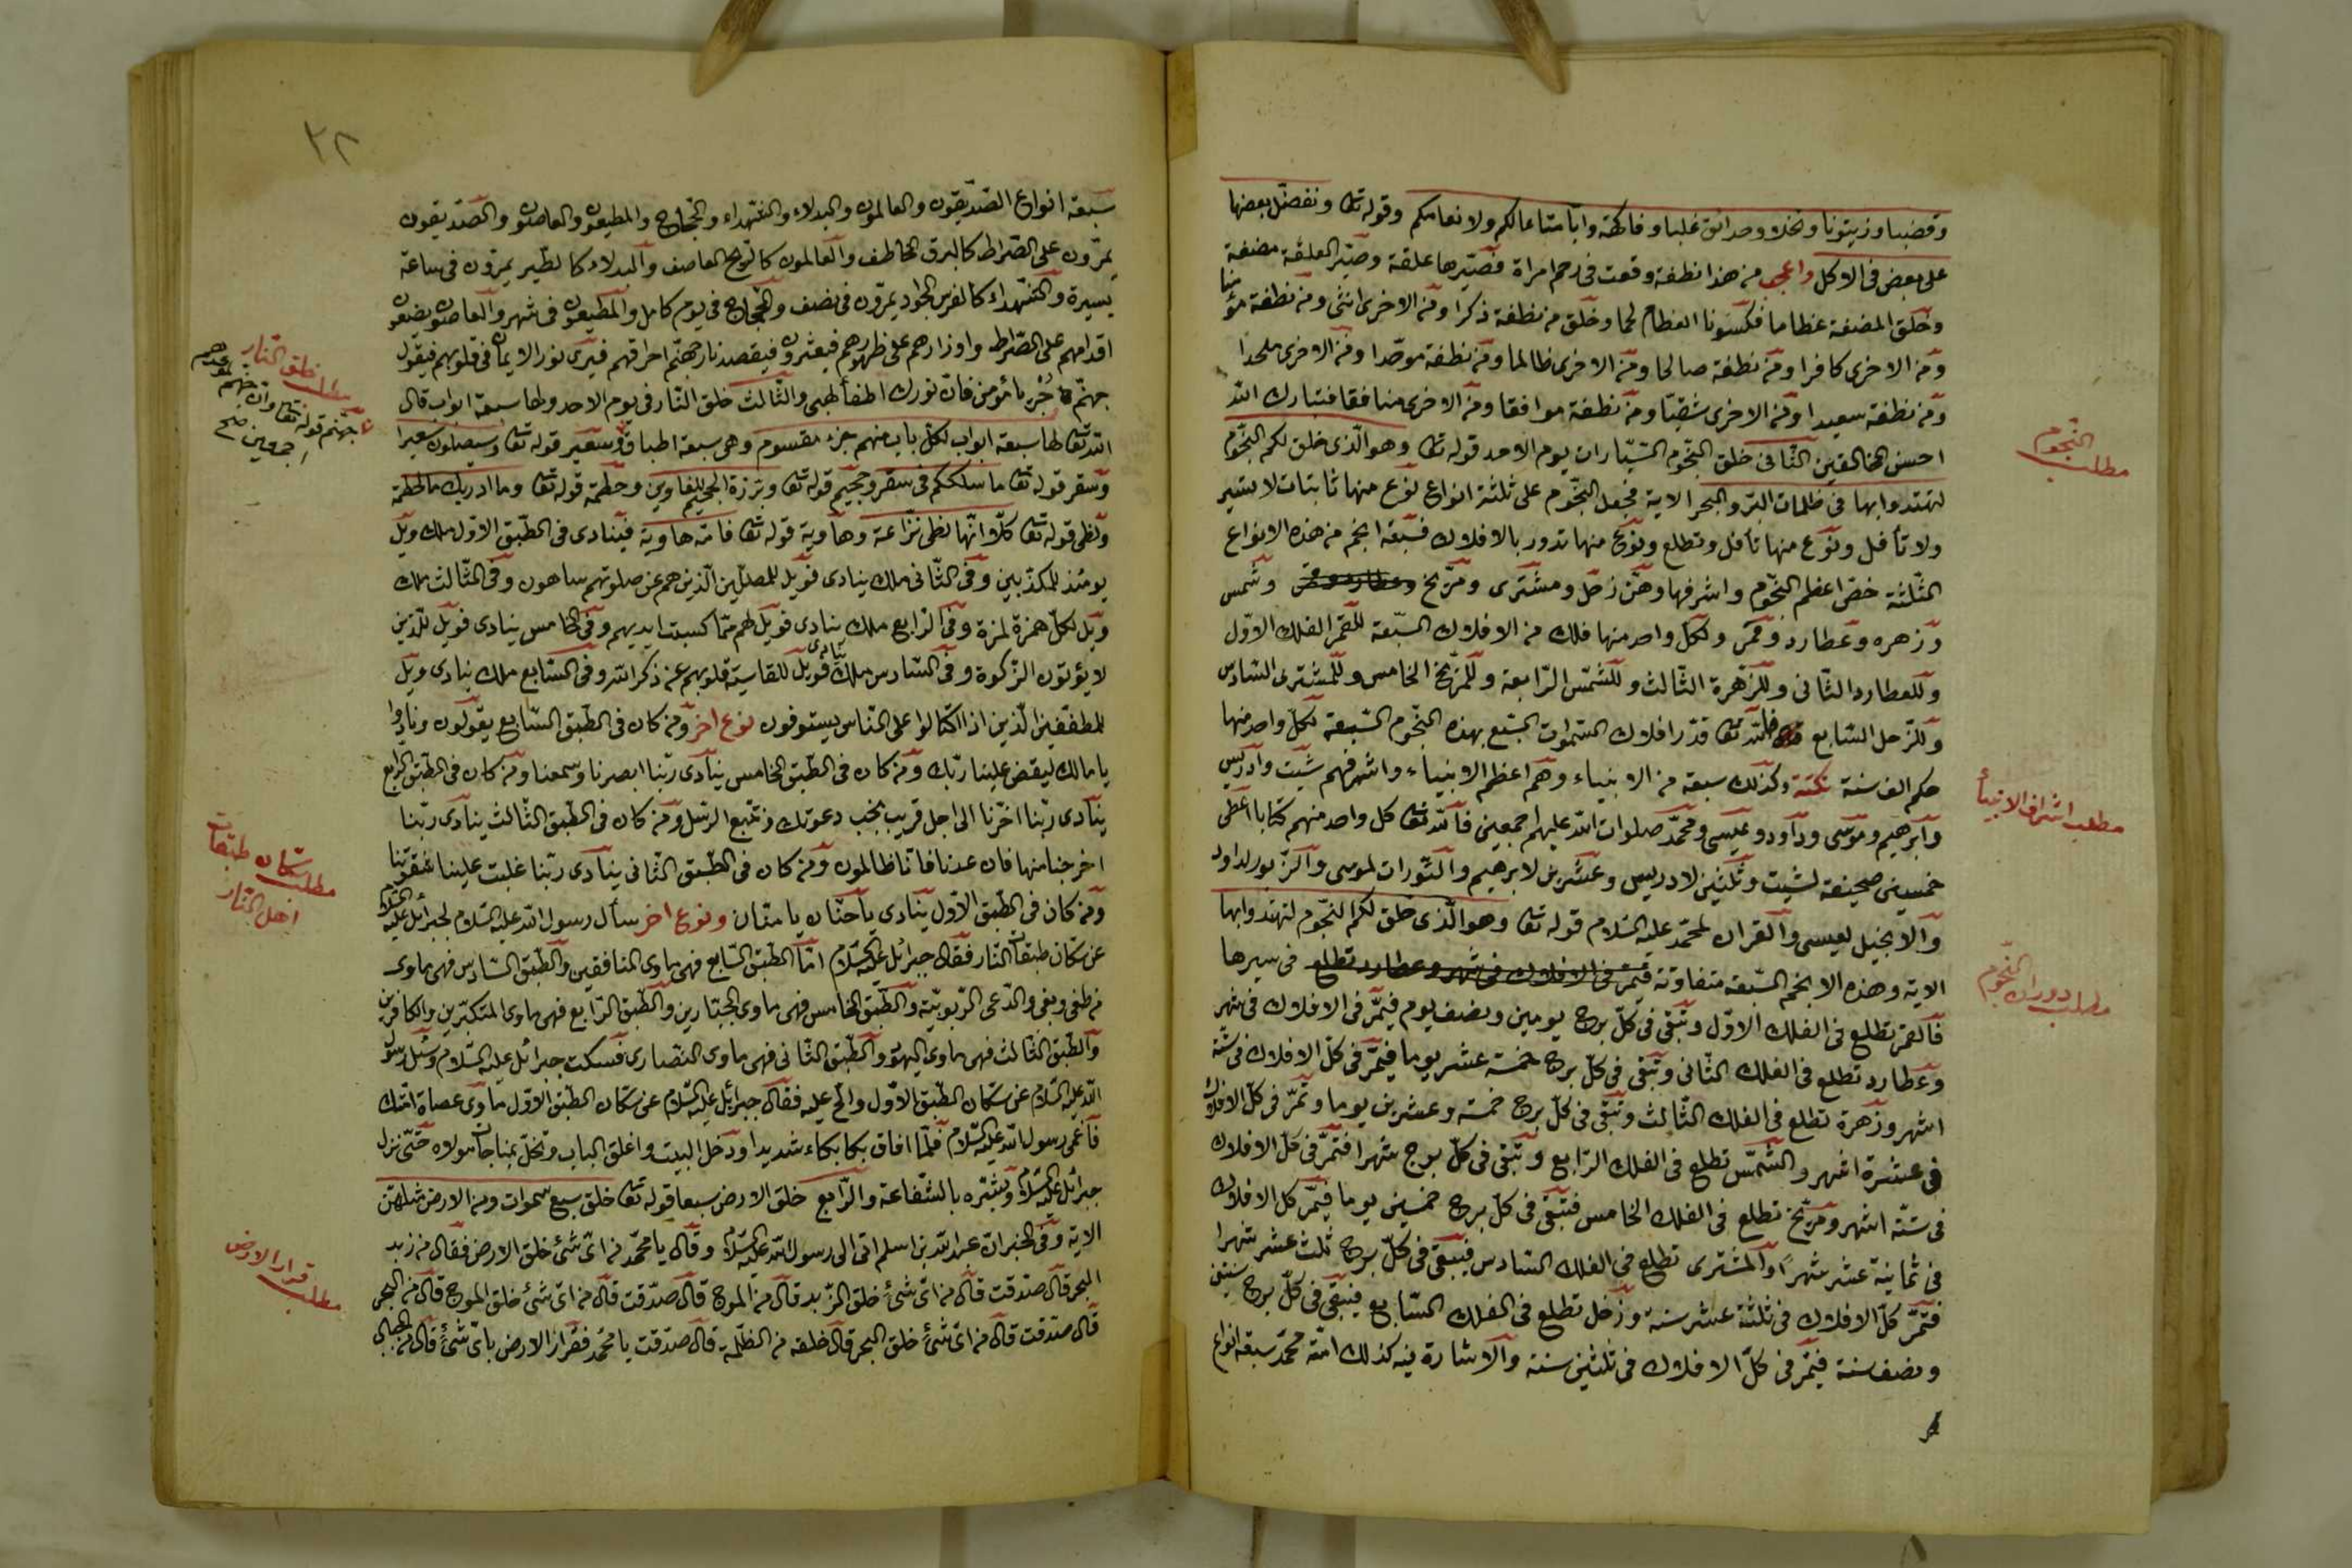 وقضبا وزيتونا ونخلا وحدائق غلبا وفاكهة وابّا متاعا لكم ولانعامكم وقوله تعا ونفضّل بعضها
على بعض فى الاكل واعجب من هذا نطفة وقعت فى رحم امراة فصيّرها علقة وصيّر العلقة مضغة
وخلق المضغة عظاما فكسونا العظام لحما وخلق من نطفة ذكرا ومن الاخرى انثى ومن نطفة مؤمنا
ومن الاخرى كافرا ومن نطفة صالحا ومن الاخرى ظالما ومن نطفة موحّدا ومن الاخرى ملحدا
ومن نطفة سعيدا ومن الاخرى شقيّا ومن نطفة موافقا ومن الاخرى منافقا فتبارك الله
احسن الخالقين الثّانى خلق النّجوم السّيّارات يوم الاحد قوله تعا وهو الّذى خلق لكم النّجوم
لتهتدوا بها فى ظلمات البرّ والبحر الاية فجعل النّجوم على ثلثة انواع نوع منها ثابتات لا تسير
ولا تأفل ونوع منها تأفل وتطلع ونوع منها تدور بالافلاك فسبعة انجم من هذه الانواع
الثّلثة خصّ اعظم النّجوم واشرفها وهنّ زحل ومشترى ومرّيخ وشمس
وزهره وعطارد وقمر ولكلّ واحد منها فلك من الافلاك السّبعة للقمر الفلك الاوّل
وللعطارد الثّانى وللزّهرة الثّالث وللشّمس الرّابعة وللمرّيخ الخامس وللمشترى السّادس
وللزّحل السّابع فالله تعا قدّر افلاك السّموات السّبع بهذه النّجوم السّبعة لكلّ واحد منها
حكم الف سنة نكتة وكذلك سبعة من الانبياء وهم اعظم الانبياء واشرفهم شيت وادريس
وابرهيم وموسى وداود وعيسى ومحمّد صلوات الله عليهم اجمعين فالله تعا كل واحد منهم كتابا اعطى
خمسين صحيفة لشيت وثلثين لادريس وعشرين لابرهيم والتّورات لموسى والزّبور لداود
والانجيل لعيسى والقران لمحمّد عليه السّلام قوله تعا وهو الّذى خلق لكم النّجوم لتهتدوا بها
الاية وهذه الانجم السّبعة متفاوتة فيمرّ فى الافلاك فى شهر وعطارد تطلع فى سيرها
فالقمر تطلع فى الفلك الاوّل وتبقى فى كلّ برج يومين ونصف يوم فيمرّ فى الافلاك فى شهر
وعطارد تطلع فى الفلك الثّانى وتبقى فى كلّ برج خمسة عشر يوما فيمرّ فى كلّ الافلاك فى ستّة
اشهر وزهرة تطلع فى الفلك الثّالث وتبقى فى كلّ برج خمسة وعشرين يوما وتمرّ فى كلّ الافلاك
فى عشرة اشهر والشّمس تطلع فى الفلك الرّابع وتبقى فى كلّ برج شهرا فتمرّ فى كلّ الافلاك
فى ستّة اشهر ومرّيخ تطلع فى الفلك الخامس فتبقى فى كلّ برج خمسين يوما فيمرّ كل الافلاك
فى ثمانية عشر شهرًا والمشترى تطلع فى الفلك السّادس فيبقى فى كلّ برج ثلث عشر شهرا
فتمرّ كلّ الافلاك فى ثلثة عشر سنة وزحل تطلع فى الفلك السّابع فيبقى فى كلّ برج سنتين
ونصف سنة فيمرّ فى كلّ الافلاك فى ثلثين سنة والاشارة فيه كذلك امّة محمّد سبعة انواع
مطلب النّجوم
مطلب اشراف الانبيأ
مطلب دوران النّجوم
٣٢
سبعة انواع الصّدّيقون والعالمون والبدلاء والشّهداء والحجّاج والمطيعون والعاصون والصّدّيقون
يمرّون على الصّراط كالبرق الخاطف والعالمون كالرّيح العاصف والبدلاء كالطّير يمرّون فى ساعة
يسيرة والشّهداء كالفرس الجواد يمرّون فى نصف والحجّاج فى يوم كامل والمطيعون فى شهر والعاصون يضعون
اقدامهم على الصّراط واوزارهم على ظهورهم فيعثرون فيقصد نار جهنّم احراقهم فيرى نور الايمان فى قلوبهم فيقول
جهنّم جُزْ يا مؤمن فانّ نورك اطفأ لهبى والثّالث خلق النّار فى يوم الاحد ولها سبعة ابواب قال
الله تعا لها سبعة ابواب لكلّ باب منهم جزء مقسوم وهى سبعة اطباق وسعير قوله تعا وسيصلون سعيرا
وسقر قوله تعا ما سلككم فى سقر وجحيم قوله تعا وبرّزة الجحيم للغاوين وحطمة قوله تعا وما ادريك ما الحطمة
ولظى قوله تعا كلّا انّها لظى نزّاعة وهاوية قوله تعا فامّه هاوية فينادى فى الطّبق الاوّل ملك ويل
يومئذ للمكذّبين وفى الثّانى ملك ينادى فويل للمصلّين الّذين هم عن صلوتهم ساهون وفى الثّالث ملك
ويل لكلّ همزة لمزة وفى الرّابع ملك ينادى فويل لهم ممّا كسبت ايديهم وفى الخامس ينادى فويل للّذين
لا يؤتون الزّكوة وفى السّادس ملك ينادى فويل للقاسية قلوبهم عن ذكر الله وفى السّابع ملك ينادى ويل
للمطفّفين الّذين اذا اكتالوا على النّاس يستوفون نوع اخر ومن كان فى الطّبق السّابع يقولون ونادوا
يا مالك ليقض علينا ربّك ومن كان فى الطّبق الخامس ينادى ربّنا ابصرنا وسمعنا ومن كان فى الطّبق الرابع
ينادى ربّنا اخّرنا الى اجل قريب نجب دعوتك ونتّبع الرّسل ومن كان فى الطّبق الثّالث ينادى ربّنا
اخرجنا منها فان عدنا فانا ظالمون ومن كان فى الطّبق الثّانى ينادى ربّنا غلبت علينا شقوتنا
ومن كان فى الطّبق الاوّل ينادى يا حنّان يا منّان ونوع اخر سأل رسول الله عليه السّلام لجبرائيل عليه السّلام
عن سكّان طبقات النّار فقال جبرائيل عليه السّلام امّا الطّبق السّابع فهى ماوى المنافقين والطّبق السّادس فهى ماوى
من طغى وبغى والدّعى الرّبوبيّة والطّبق الخامس فهى ماوى الجبّارين والطّبق الرّابع فهى ماوى المتكبّرين والكافرين
والطّبق الثّالث فهى ماوى اليهود والطّبق الثّانى فهى ماوى النّصارى فسكت جبرائيل عليه السّلام وسئل رسول
الله عليه السّلام عن سكّان الطّبق الاوّل والحّ عليه فقال جبرائيل عليه السّلام عن سكّان الطّبق الاوّل ماوى عصاة امّتك
فاغمى رسول الله عليه السّلام فلمّا افاق بكا بكاء شديدا ودخل البيت واغلق الباب وتخلّ بمناجات مولاه حتّى نزل
جبرائيل عليه السّلام وبشّره بالشّفاعة والرّابع خلق الارض سبعا قوله تعا خلق سبع سموات ومن الارض مثلهنّ
الاية وفى الخبر انّ عبد الله بن اسلم اتى الى رسول الله عليه السّلام وقال يا محمّد من اىّ شئ خلق الارض فقال من زبد
البحر قال صدّقت قال من اىّ شئ خلق الزّبد قال من الموج قال صدّقت قال من اىّ شئ خلق الموج قال من البحر
قال صدّقت قال من اىّ شئ خلق البحر قال خلقه من الظّلمة قال صدّقت يا محمّد فقرار الارض باىّ شئ قال من الجبال
مطلب خلق النّار
جهنّم قوله تعا وانّ جهنّم لموعدهم
اجمعين صح
مطلب سكّان طبقات
اهل النّار
مطلب قرار الارض